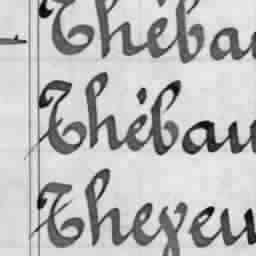 Thébau
Thébau
Theveu